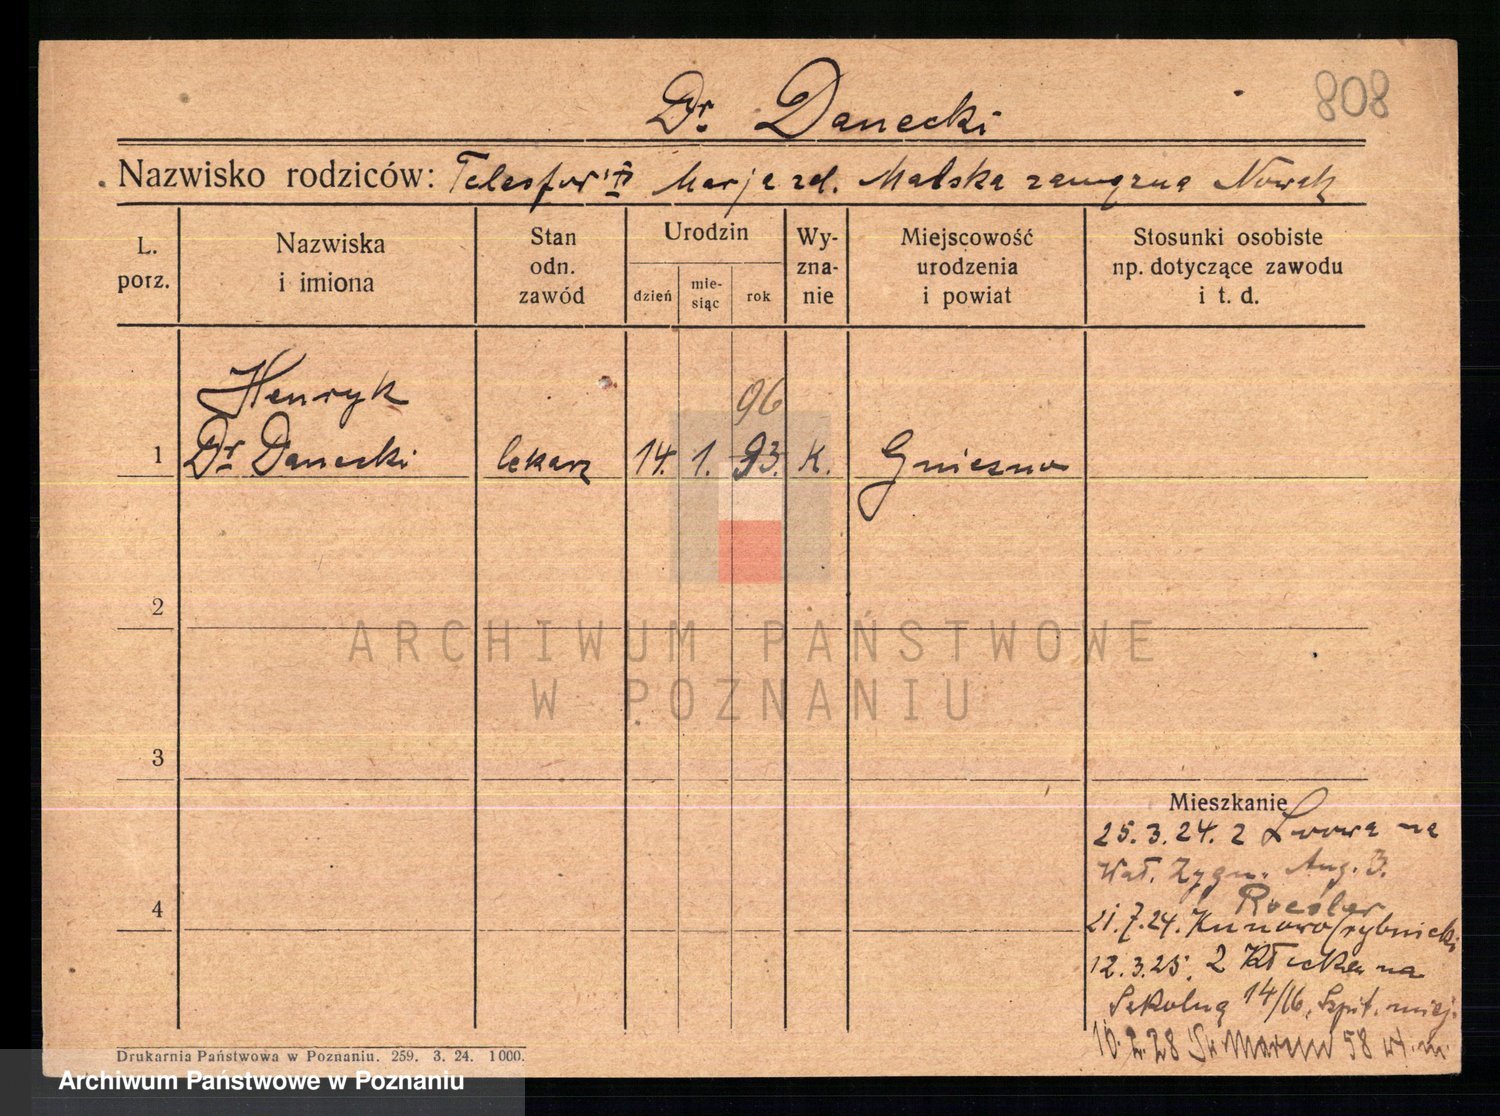 808
Dr. Danecki
Nazwisko rodziców: Telesfor Marja zd. Malska zamężna Nowak
L. porz.
Nazwiska i imiona
Stan odn. zawód
Urodzin
dzień
mie-siąc
rok
Wy-zna-nie
Miejscowość urodzenia i powiat
Stosunki osobiste np. dotyczące zawodu i t. d.
Henryk
96
1 Dr Danecki lekarz 14. 1. 93. K. Gniezno
2
ARCHIWUM PAŃSTWOWE
W POZNANIU
3
Mieszkanie
25.3.24. z Lwowa na
Wał. Zygm. Aug. 3.
Roesler
4
21.7.24. Kunowo/rybnicki
12.3.25. z Kłecka na
Szkolną 14/16, Szpit. miej.
10.2.28 Św Marcin 58 wł. m.
Drukarnia Państwowa w Poznaniu. 259. 3. 24. 1000.
Archiwum Państwowe w Poznaniu